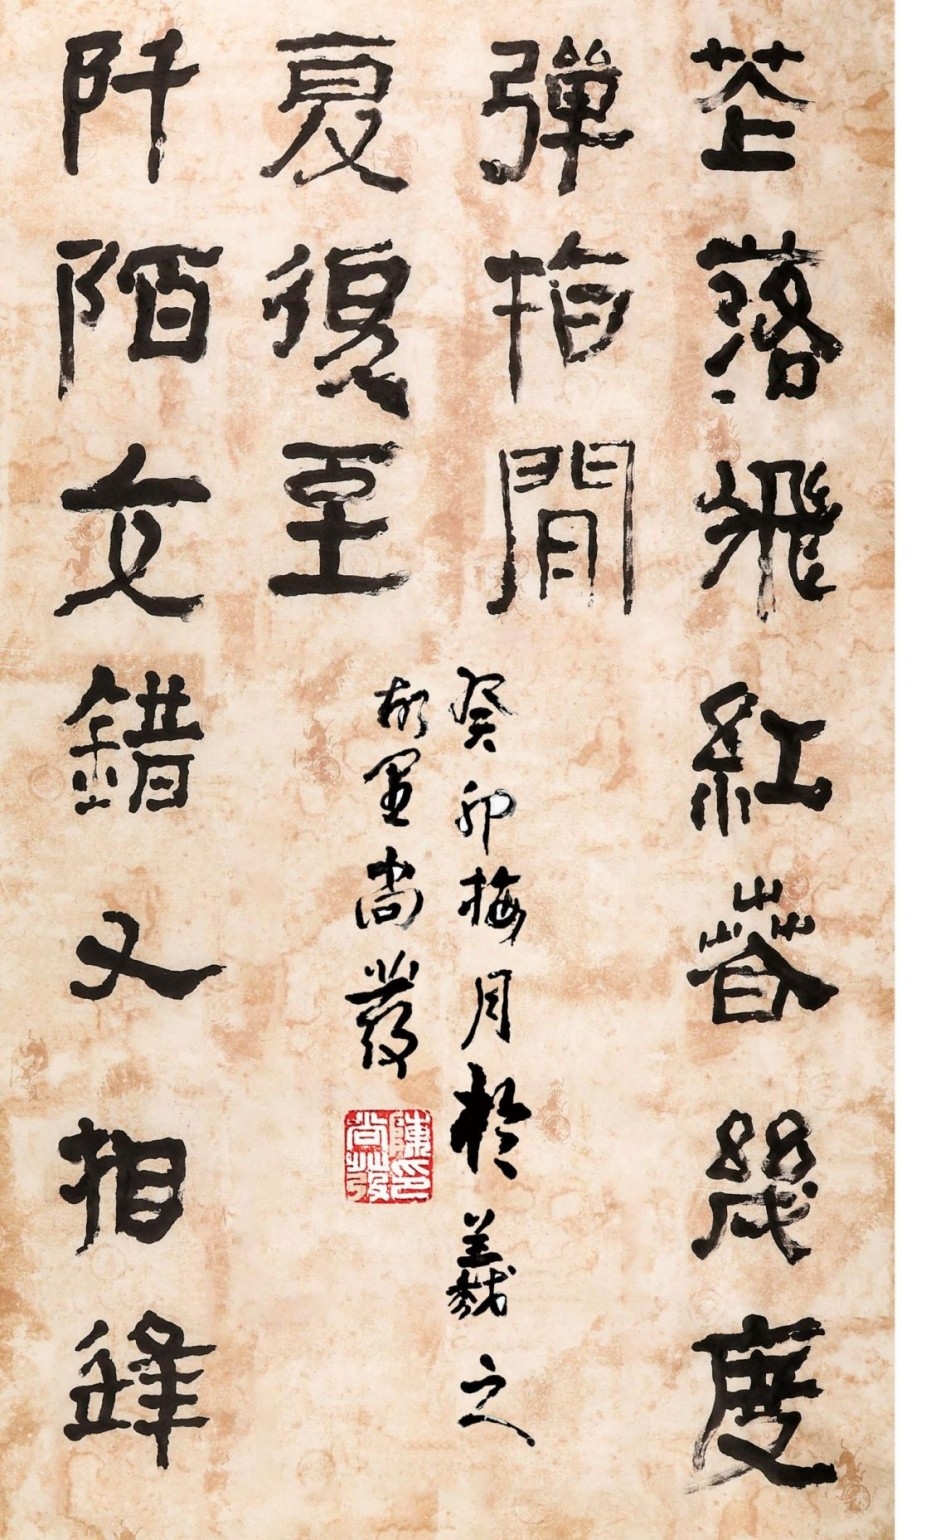 花落飛紅春幾度
彈指間
夏復至
阡陌交錯又相逢
癸卯梅月於羲之
故里尚發
陳印
尚發